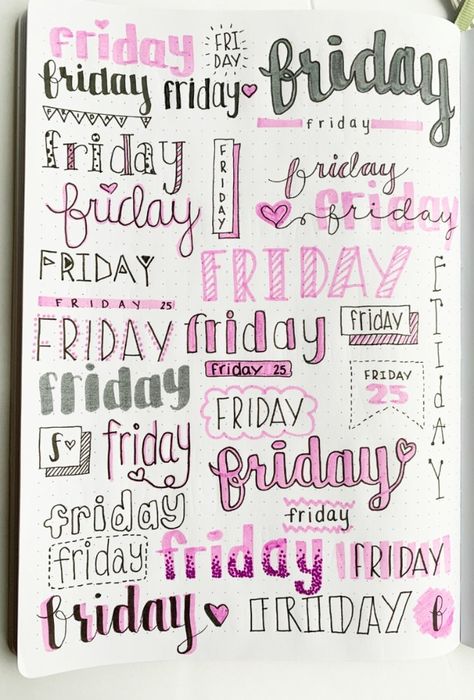 friday
FRI
DAY
friday
friday
friday
friday
friday
FRIDAY
friday
friday
friday
FRIDAY
FRIDAY
FrIdAY
FRIDAY 25
FRIDAY
friday
friday
friday
friday 25
FRIDAY
25
FRIDAY
f
friday
friday
friday
friday
friday
friday
FRIDAY
friday
FRIDAY
f